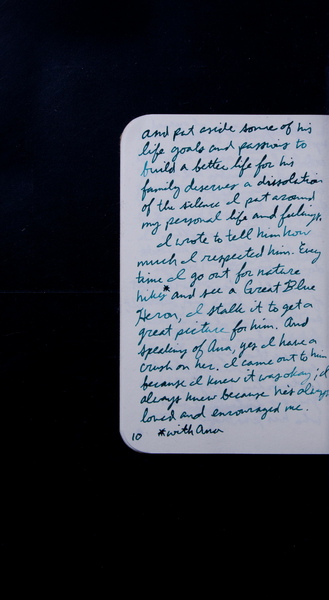 and put aside some of his
life goals and passions to
build a better life for his
family deserves a dissolution
of the silence I put around
my personal life and feelings.
I wrote to tell him how
much I respected him. Every
time I go out for nature
hikes* and see a Great Blue
Heron, I stalk it to get a
great picture for him. And
speaking of Ana, yes I have a
crush on her. I came out to him
because I knew it was okay; I
always knew because he's always
loved and encouraged me.
10 *with Ana